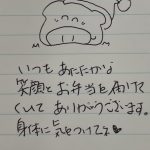 いつもあたたかな
笑顔とお弁当を届けて
くださってありがとうございます。
身体に気をつけてね♥